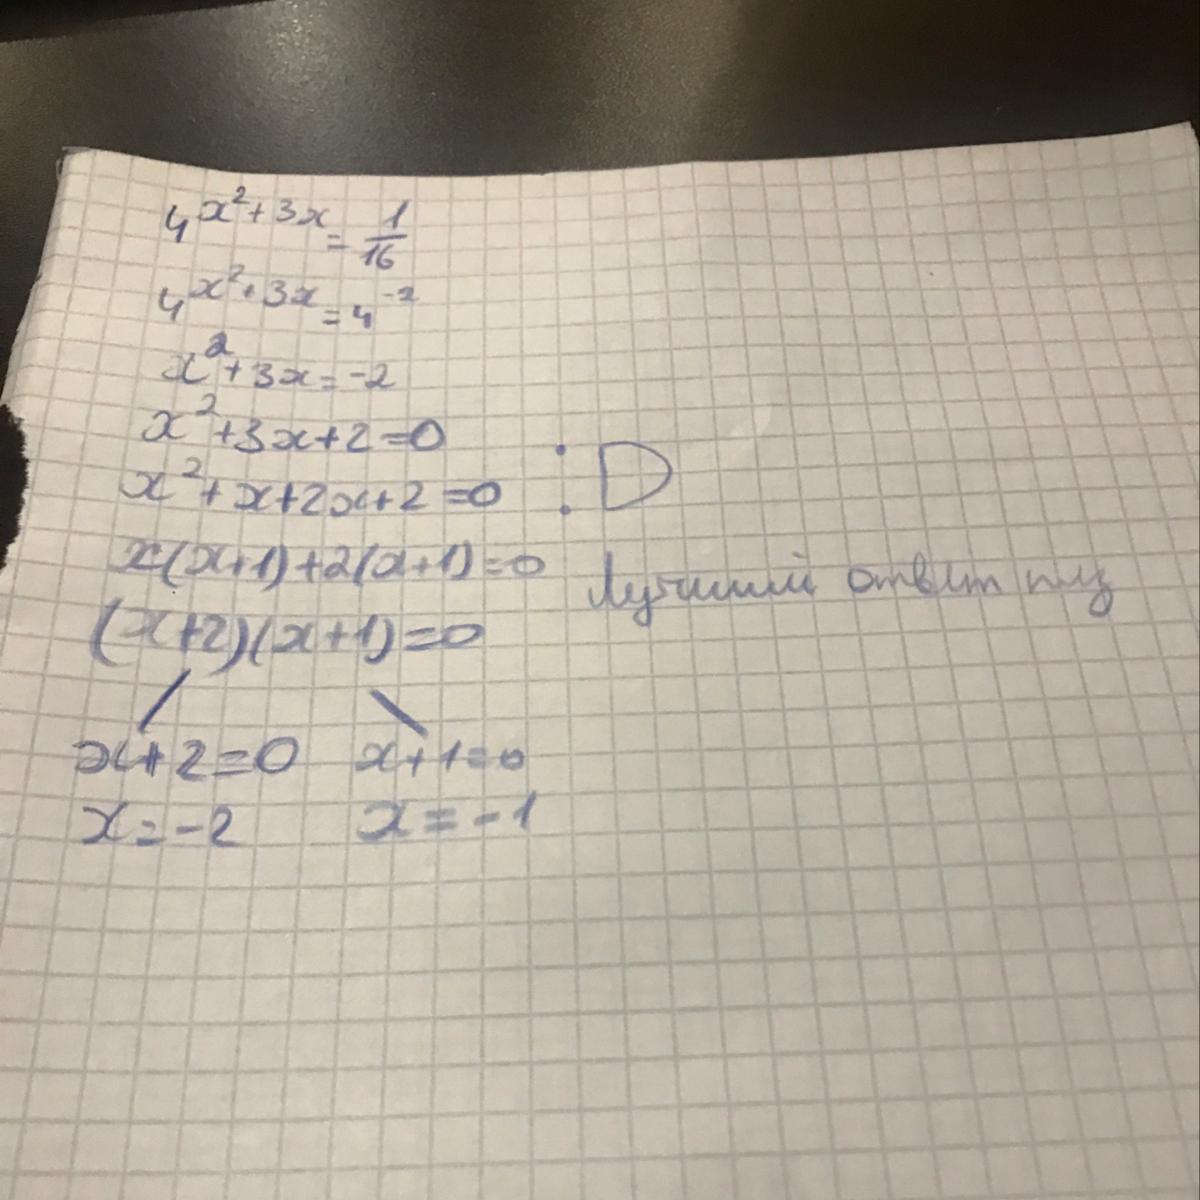 4^(x²+3x) = 1/16
4^(x²+3x) = 4^(-2)
x²+3x=-2
x²+3x+2=0
x²+x+2x+2=0
:D
x(x+1)+2(x+1)=0
Лучший ответ плз
(x+2)(x+1)=0
x+2=0 x+1=0
x=-2 x=-1